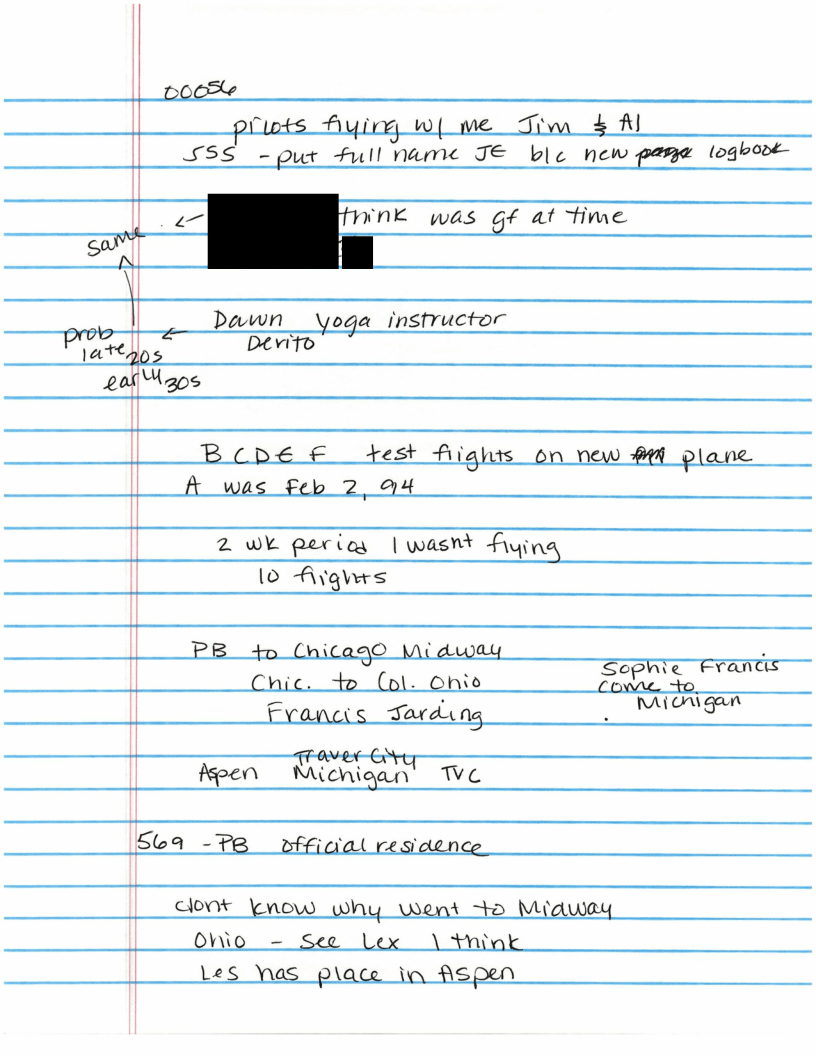 00056
pilots flying w/ me Jim & Al
SSS - put full name JE b/c new logbook
think was gf at time
same
Dawn yoga instructor
Devito
prob
late 20s
early 30s
B C D E F test flights on new plane
A was Feb 2, 94
2 wk period I wasnt flying
10 flights
PB to Chicago Midway
Chic. to Col. Ohio
Francis Jarding
Sophie Francis
come to
Michigan
Traver City
Aspen Michigan TVC
569 - PB official residence
dont know why went to Midway
Ohio - see Lex I think
Les has place in Aspen